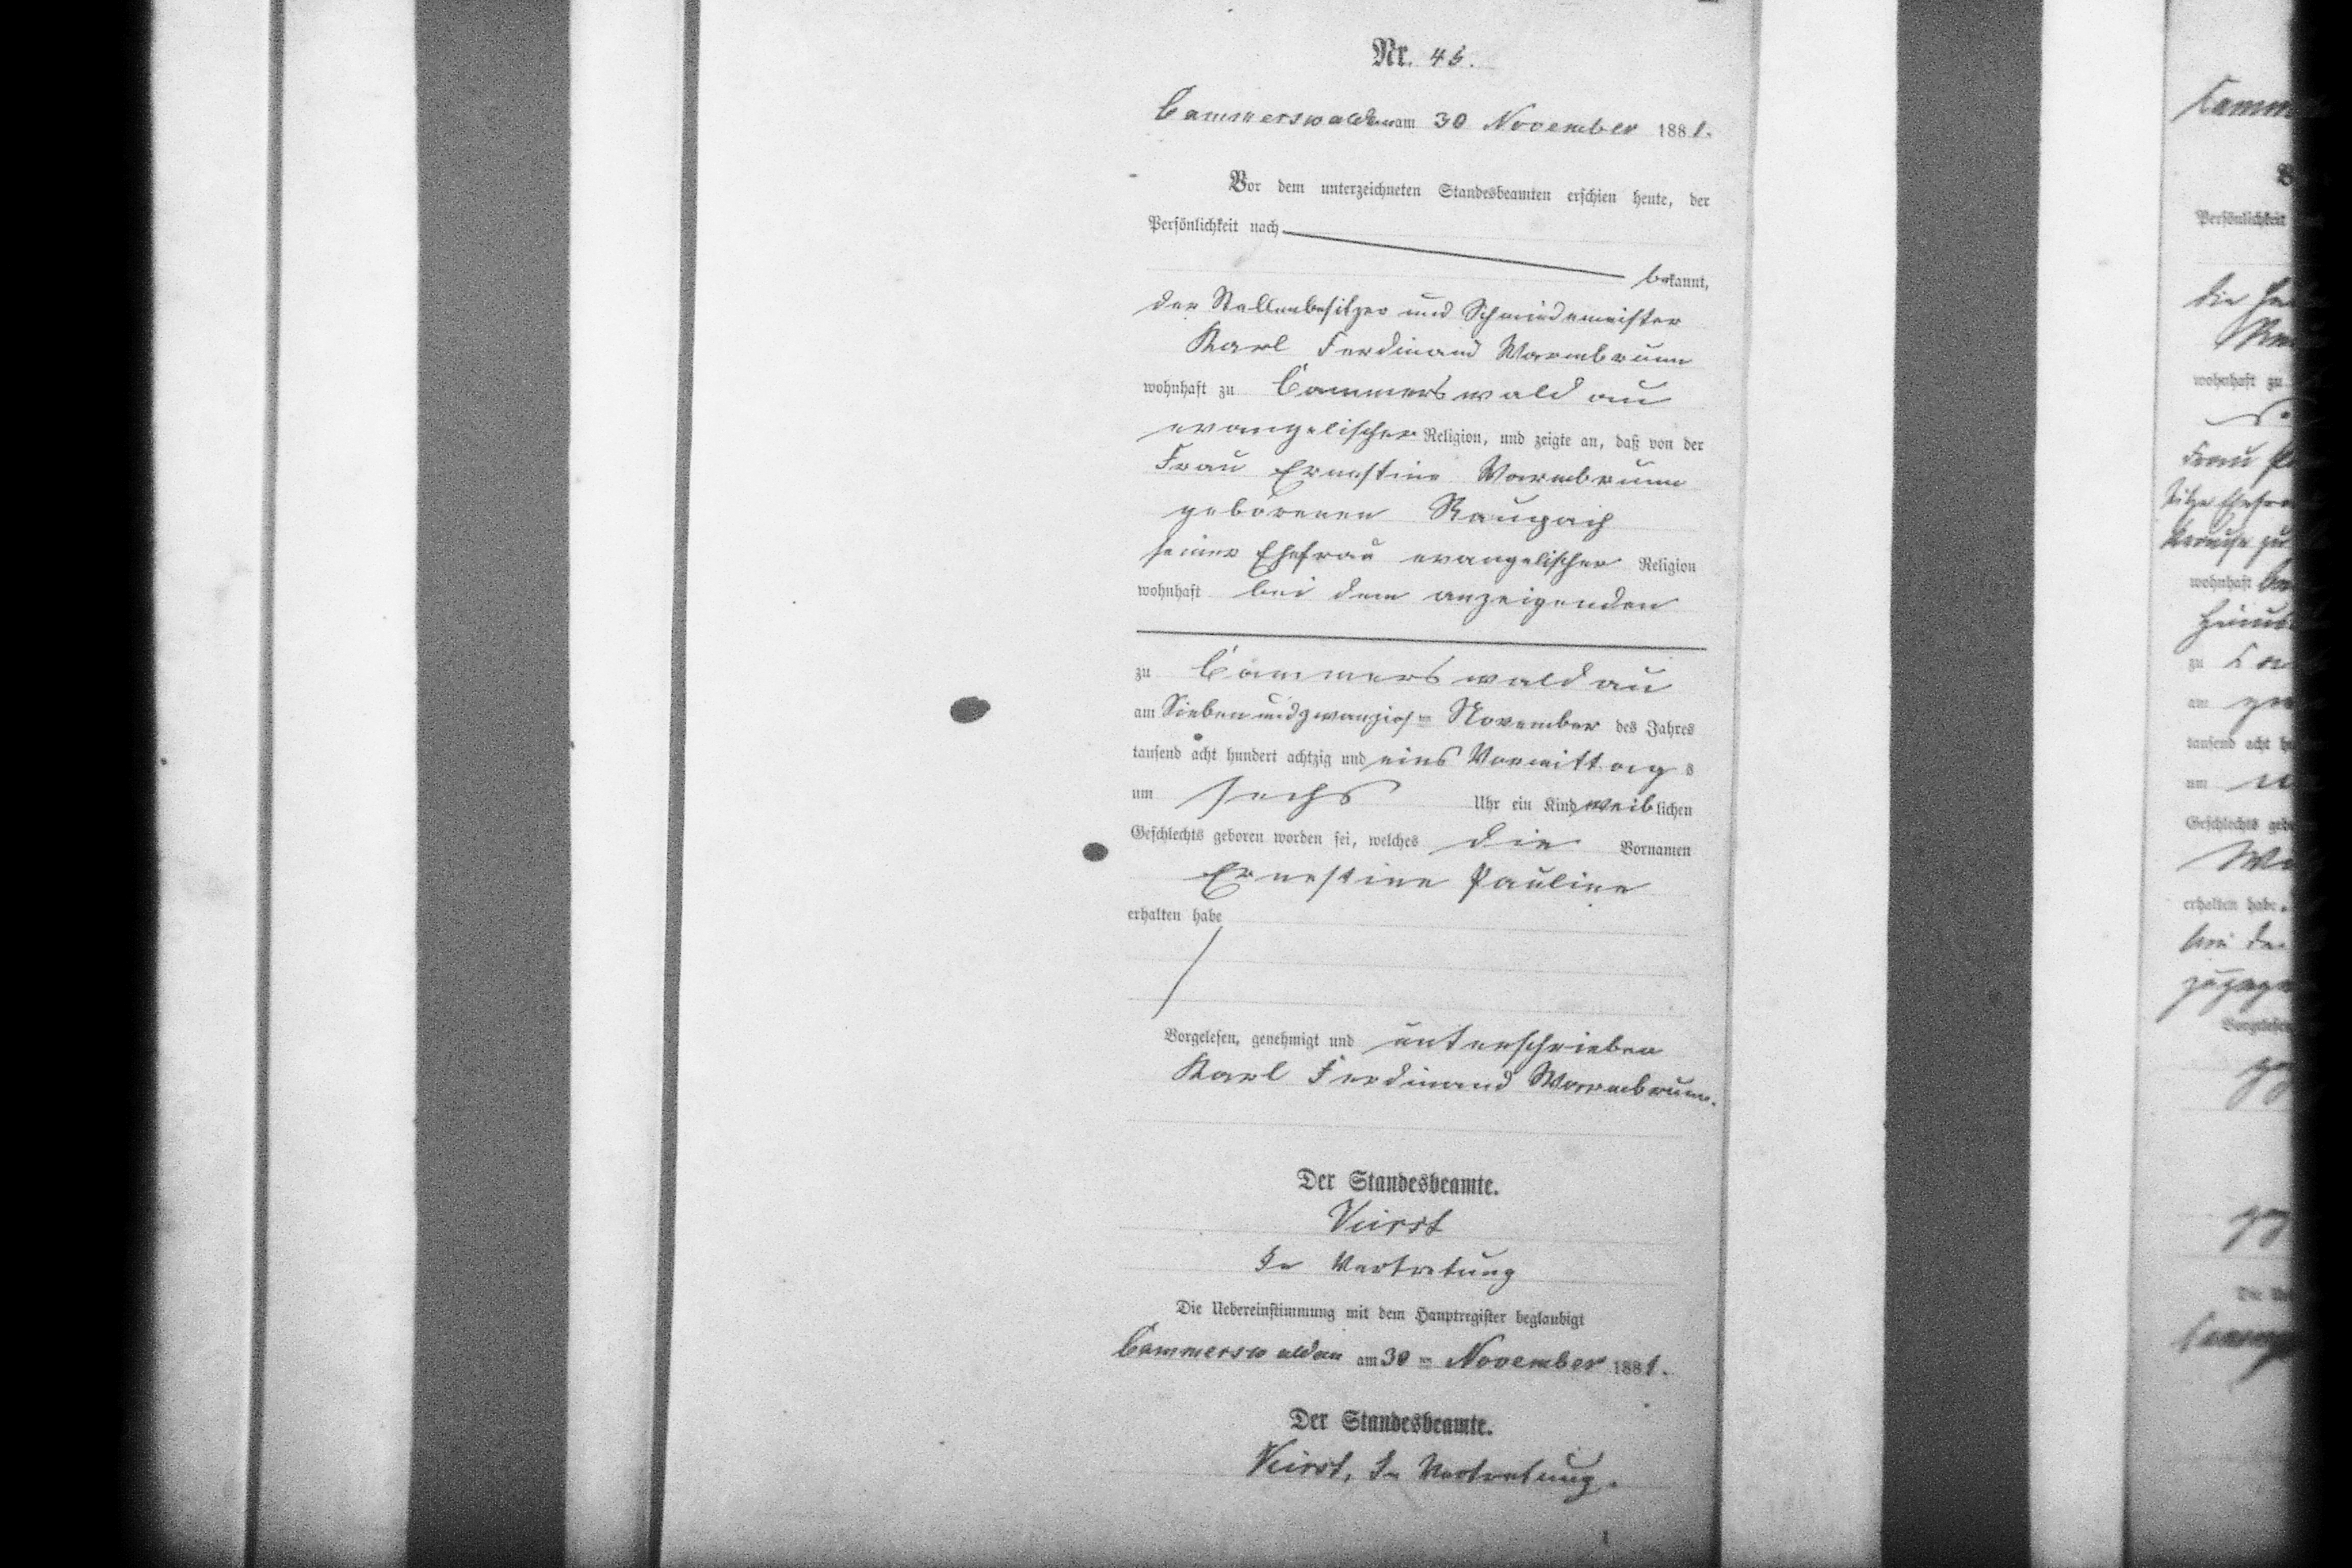 Nr. 45.
Cammerswaldau am 30 November 1881.
Vor dem unterzeichneten Standesbeamten erschien heute, der
Persönlichkeit nach
bekannt,
der Stellenbesitzer und Schmiedemeister
Karl Ferdinand Warmbrunn
wohnhaft zu Cammerswaldau
evangelischer Religion, und zeigte an, daß von der
Frau Ernestine Warmbrunn
geborenen Raupach
seiner Ehefrau evangelischer Religion
wohnhaft bei dem anzeigenden
zu Cammerswaldau
am Siebenundzwanzigsten November des Jahres
tausend acht hundert achtzig und eins Vormittags
um sechs Uhr ein Kind weiblichen
Geschlechts geboren worden sei, welches die Vornamen
Ernestine Pauline
erhalten habe
Vorgelesen, genehmigt und unterschrieben
Karl Ferdinand Warmbrunn.
Der Standesbeamte.
In Vertretung
Die Uebereinstimmung mit dem Hauptregister beglaubigt
Cammerswaldau am 30 ten November 1881.
Der Standesbeamte.
In Vertretung.